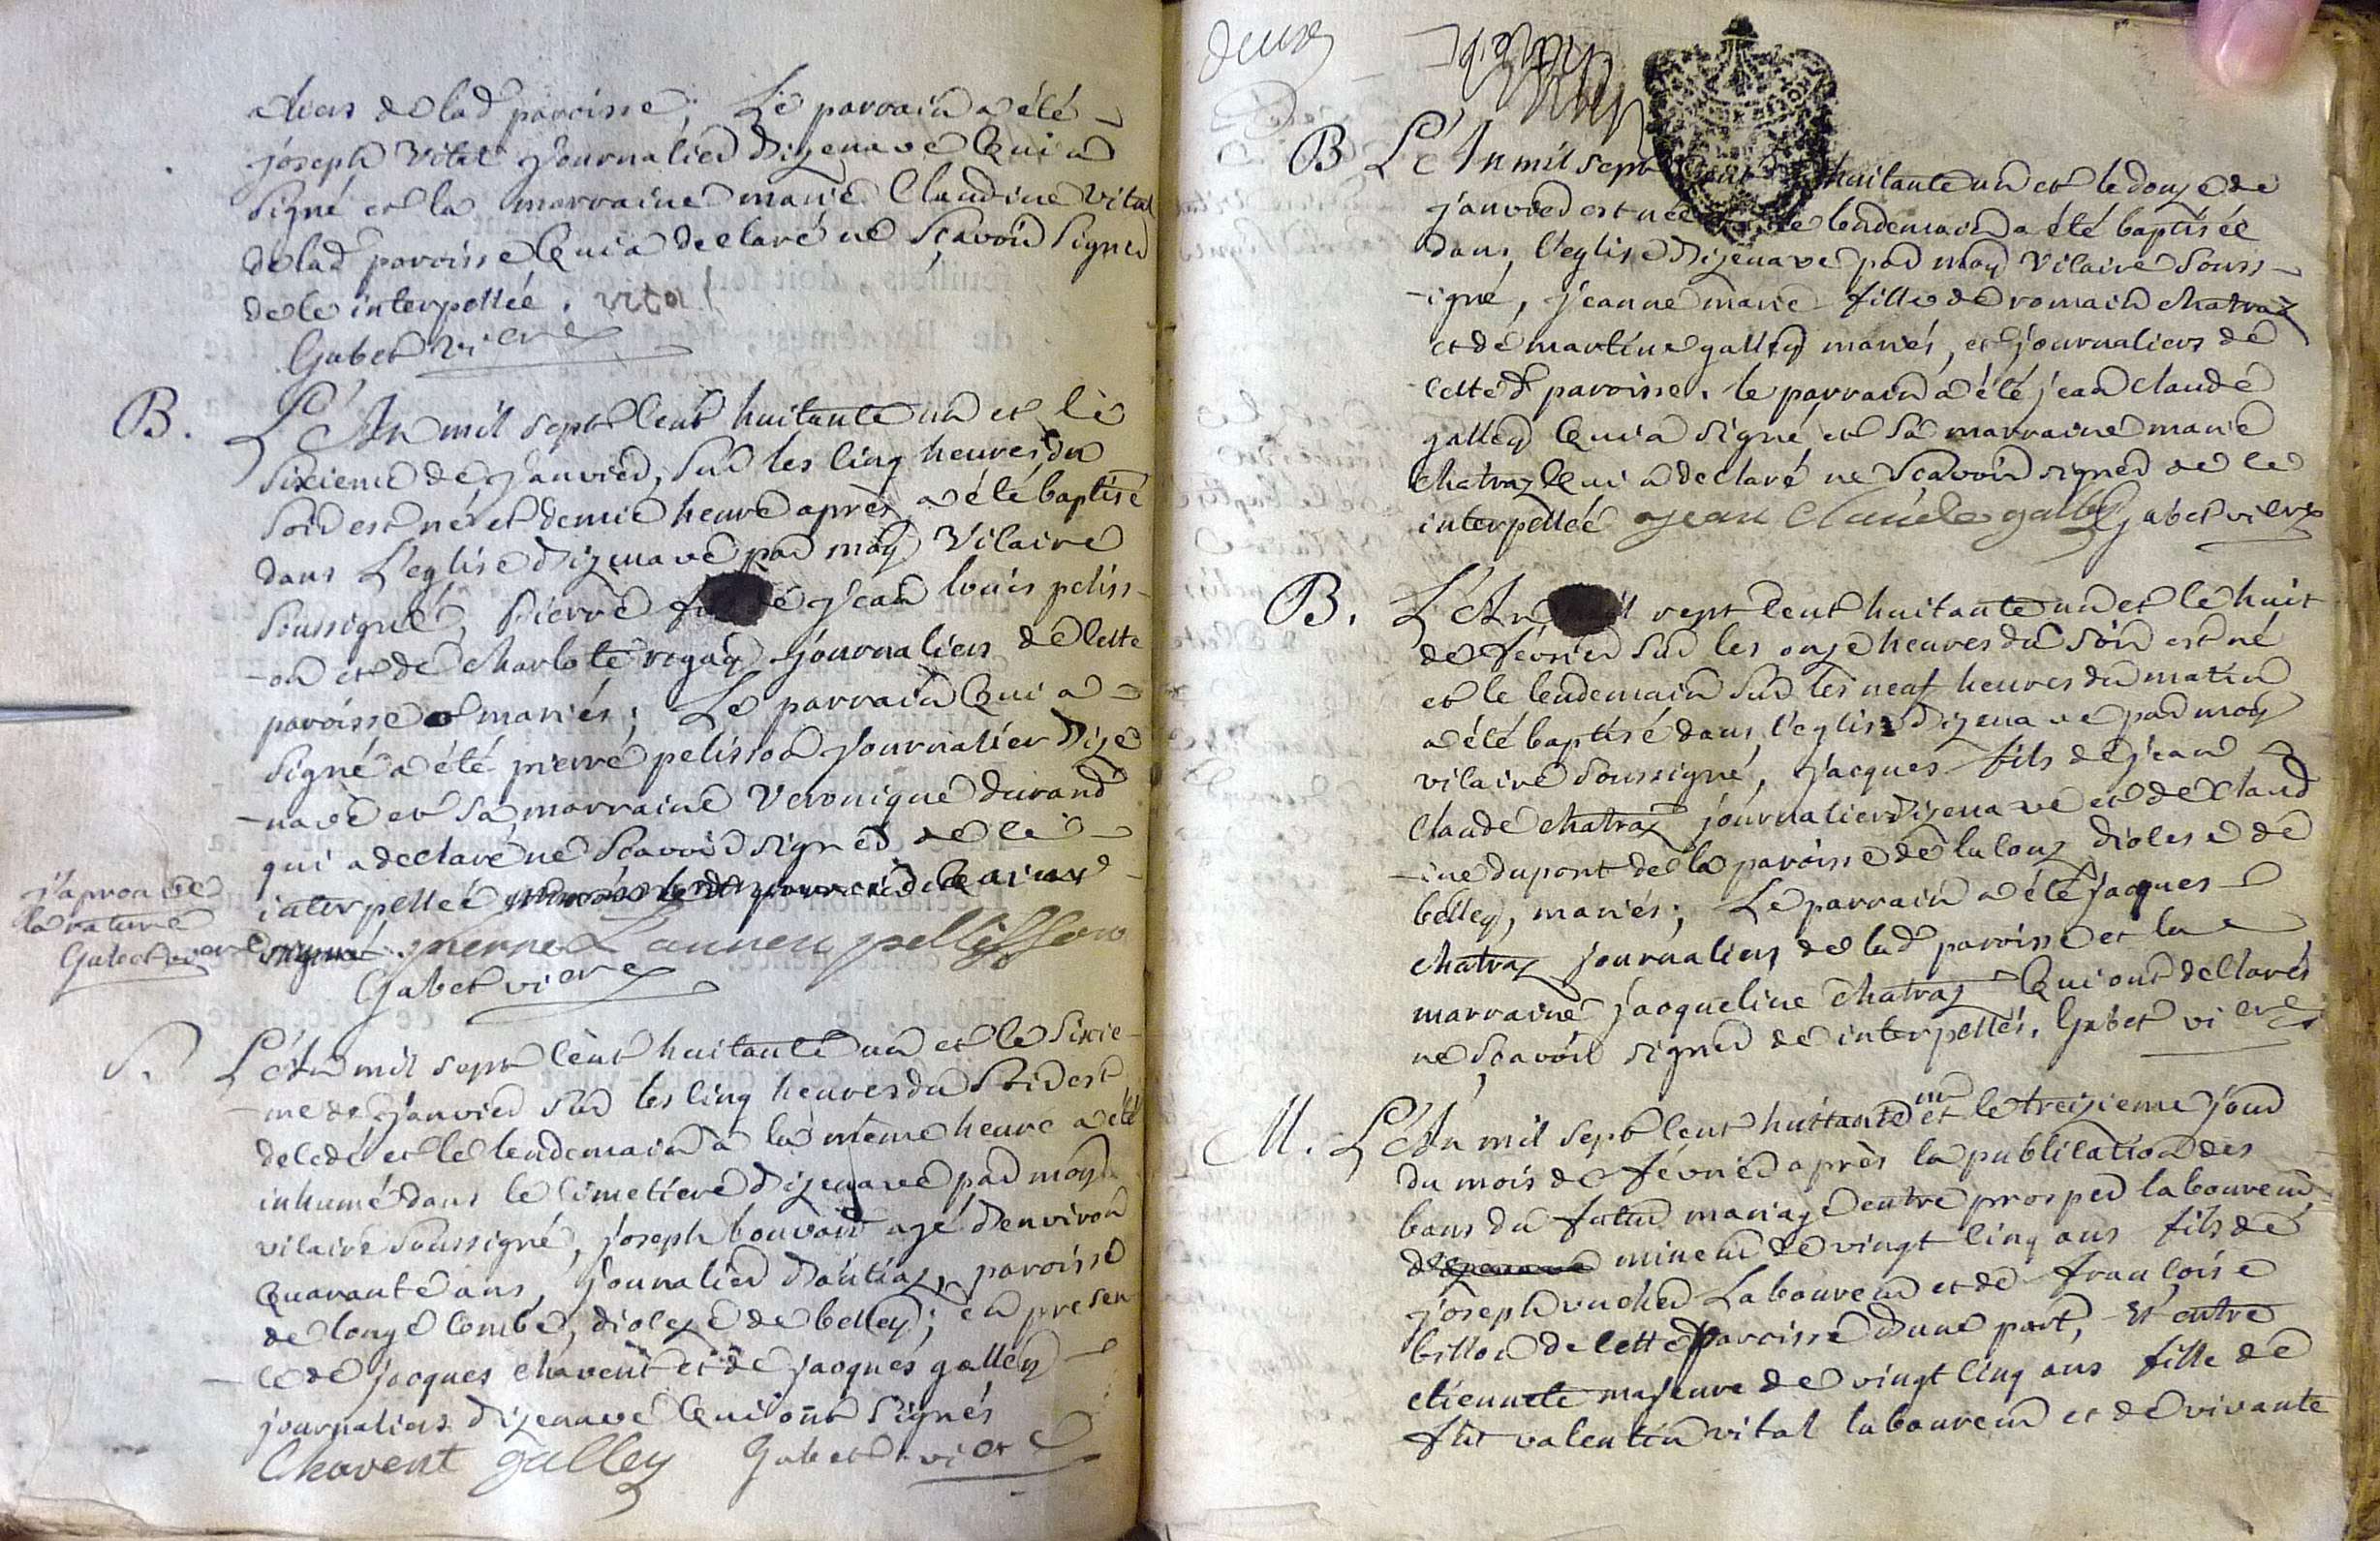 aliers de lad paroisse; Le parrain a été
joseph Vital Journalier Dizenave Qui a
signé et la marraine marie Claudine Vital
de lad paroisse Qui a declaré ne Sçavoir Signer
de ce interpellée. vital
Gabet vicre
B. L'An mil sept cent huitante un et le
sixieme de Janvier, sur les cinq heures du
soir est né et demie heure après a été baptisé
dans L'eglise Dizenave par moy Vicaire
soussigné, Pierre de jean louis peliss-
-on et de Charlote journaliers de cette
paroisse et mariés; Le parrain Qui a
signé a été pierre pelisson Journalier Dize
-nave et sa marraine Veronique durand
qui a declaré ne Scavoir signer de ce
interpellée
j'aprouve
la rature
Gabet vicre
pierre L'anneu pellisson
Gabet vicre
S. L'An mil sept cent huitante un et le Sixie-
-me de Janvier sur les cinq heures du Soir est
decedé et le lendemain a la même heure a été
inhumé dans le cimetiere Dizenave par moy
vicaire soussigné, joseph bouvant agé d'environ
Quarante ans, journalier paroisse
de longe combe, diocese de belley; en presen
ce de jacques chavent et de jacques galley
journaliers dizenave Qui ont signés
Chavent galley Gabet vicre
deux
B L'An mil sept cent huitante un et le douze de
janvier est née et le lendemain a été baptisée
dans l'eglise Dizenave par moy Vicaire souss-
-igné, jeanne marie fille de romain chatraz
et de martine galley mariés, et journaliers de
cette d paroisse. le parrain a été jean claude
galley Qui a signé et sa marraine marie
chatraz Qui a declaré ne Scavoir signer de ce
interpellée jean Claude galley Gabet vicre
B. L'An mil sept cent huitante un et le huit
de février sur les onze heures du soir est né
et le lendemain sur les neuf heures du matin
a été baptisé dans l'eglise Dizenave par moy
vicaire soussigné, jacques fils de jean
claude chatraz journalier Dizenave et de claud
-ine dupont de la paroisse de diocese de
belley, mariés; Le parrain a été jacques
chatraz journaliers de lad paroisse et la
marraine jacqueline chatraz Qui ont declarés
ne Scavoir signer de interpellés. Gabet vicre
M. L'An mil sept cent huitante un et le treizieme jour
du mois de février après la publication des
bans du futur mariage entre prosper laboureur
mineur de vingt cinq ans fils de
joseph vucher Laboureur et de françoise
billon de cette paroisse d'une part, Et entre
etiennete majeure de vingt cinq ans fille de
fut valentin vital laboureur et de vivante